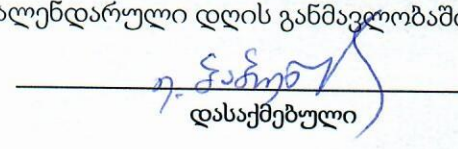 ალენდარული დღის განმავლობაში
დასაქმებული